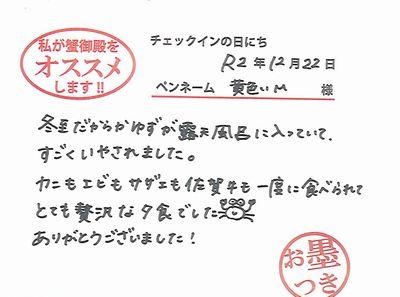 私が蟹御殿を
オススメ
します!!
チェックインの日にち
R2年12月22日
ペンネーム 黄色いM 様
冬至だからかゆずが露天風呂に入っていて、
すごくいやされました。
カニもエビもサザエも佐賀牛も一度に食べられて
とても贅沢な夕食でした
ありがとうございました!
お墨
つき